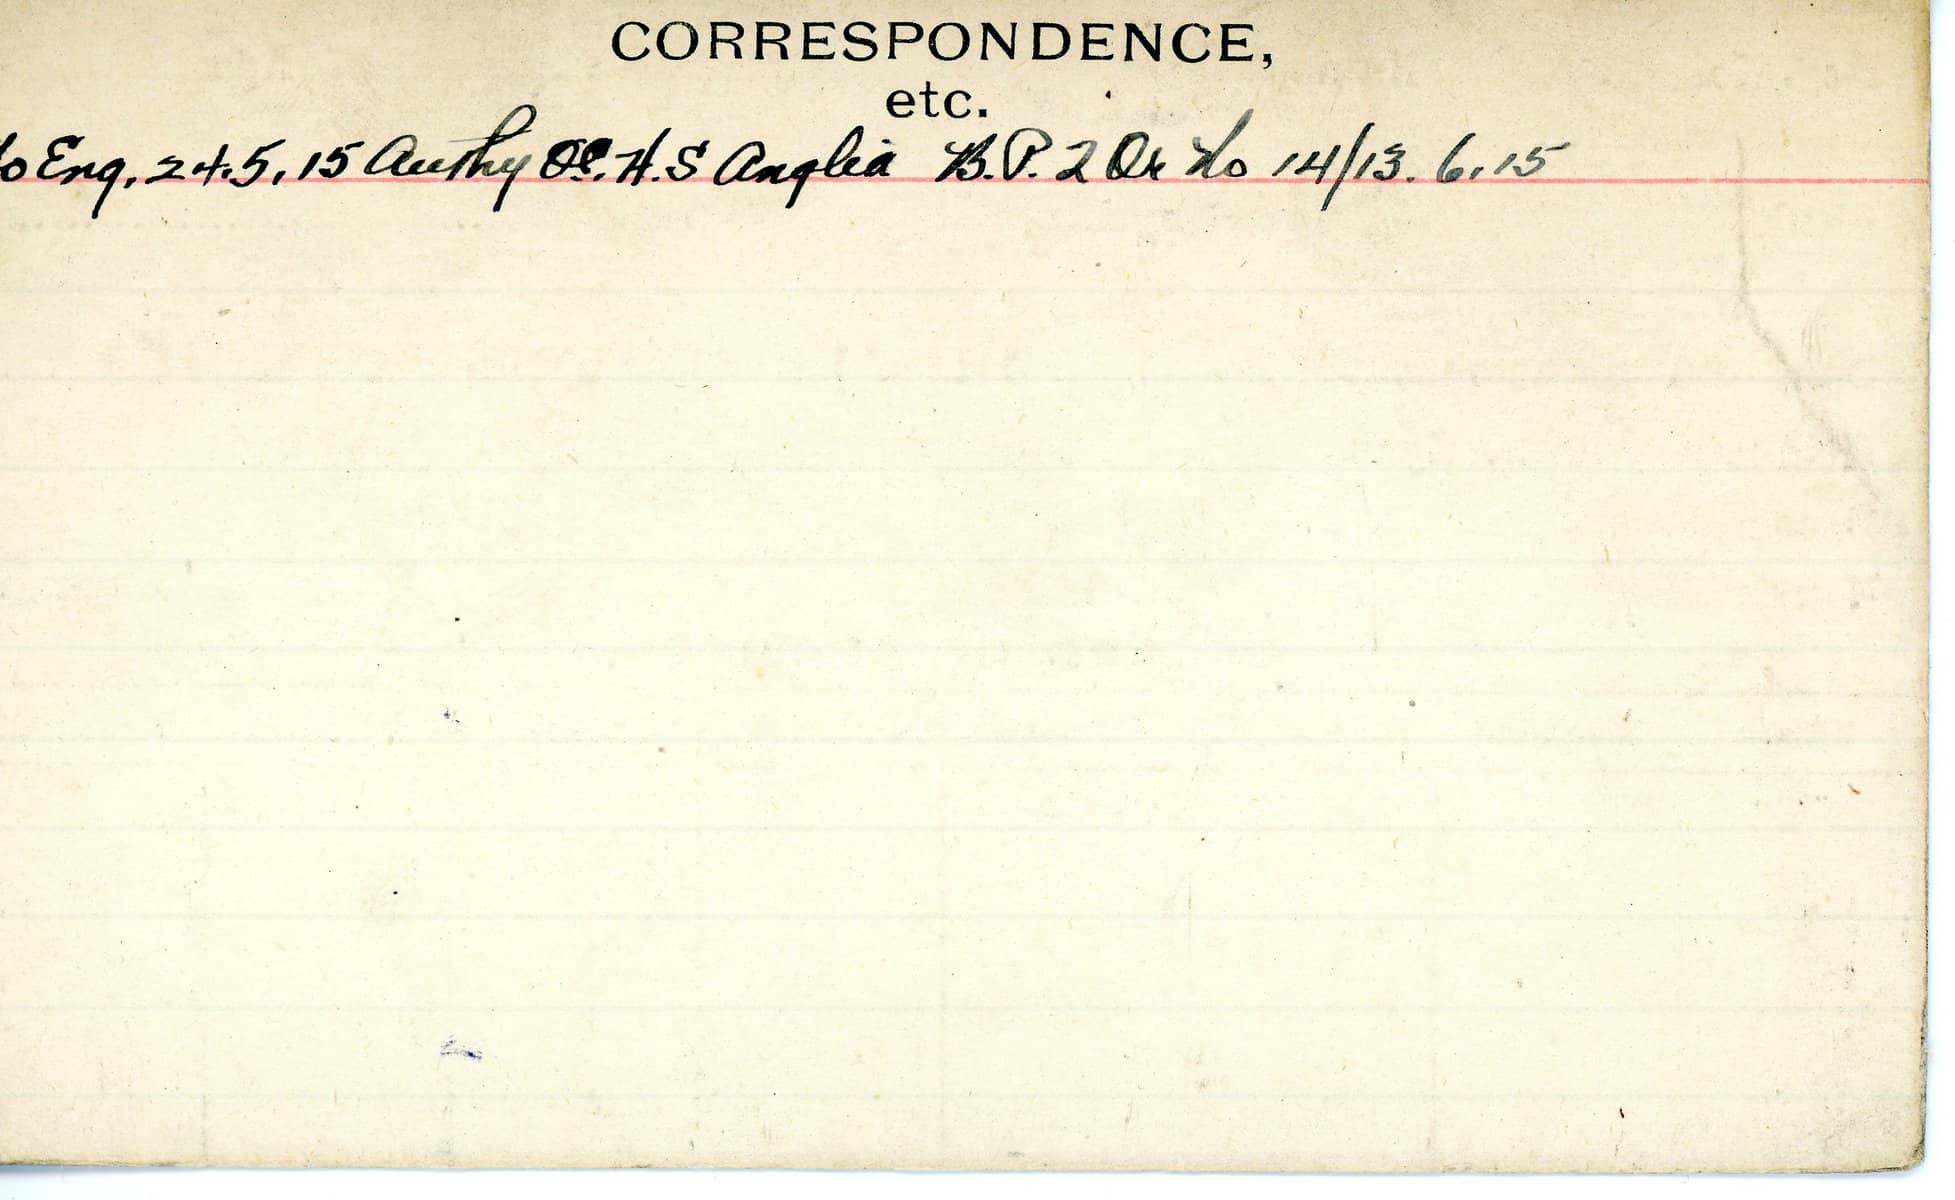 CORRESPONDENCE,
etc.
to Eng, 24.5.15 Authy OC. H.S Anglia B.P. 2 Or No 14/13. 6.15